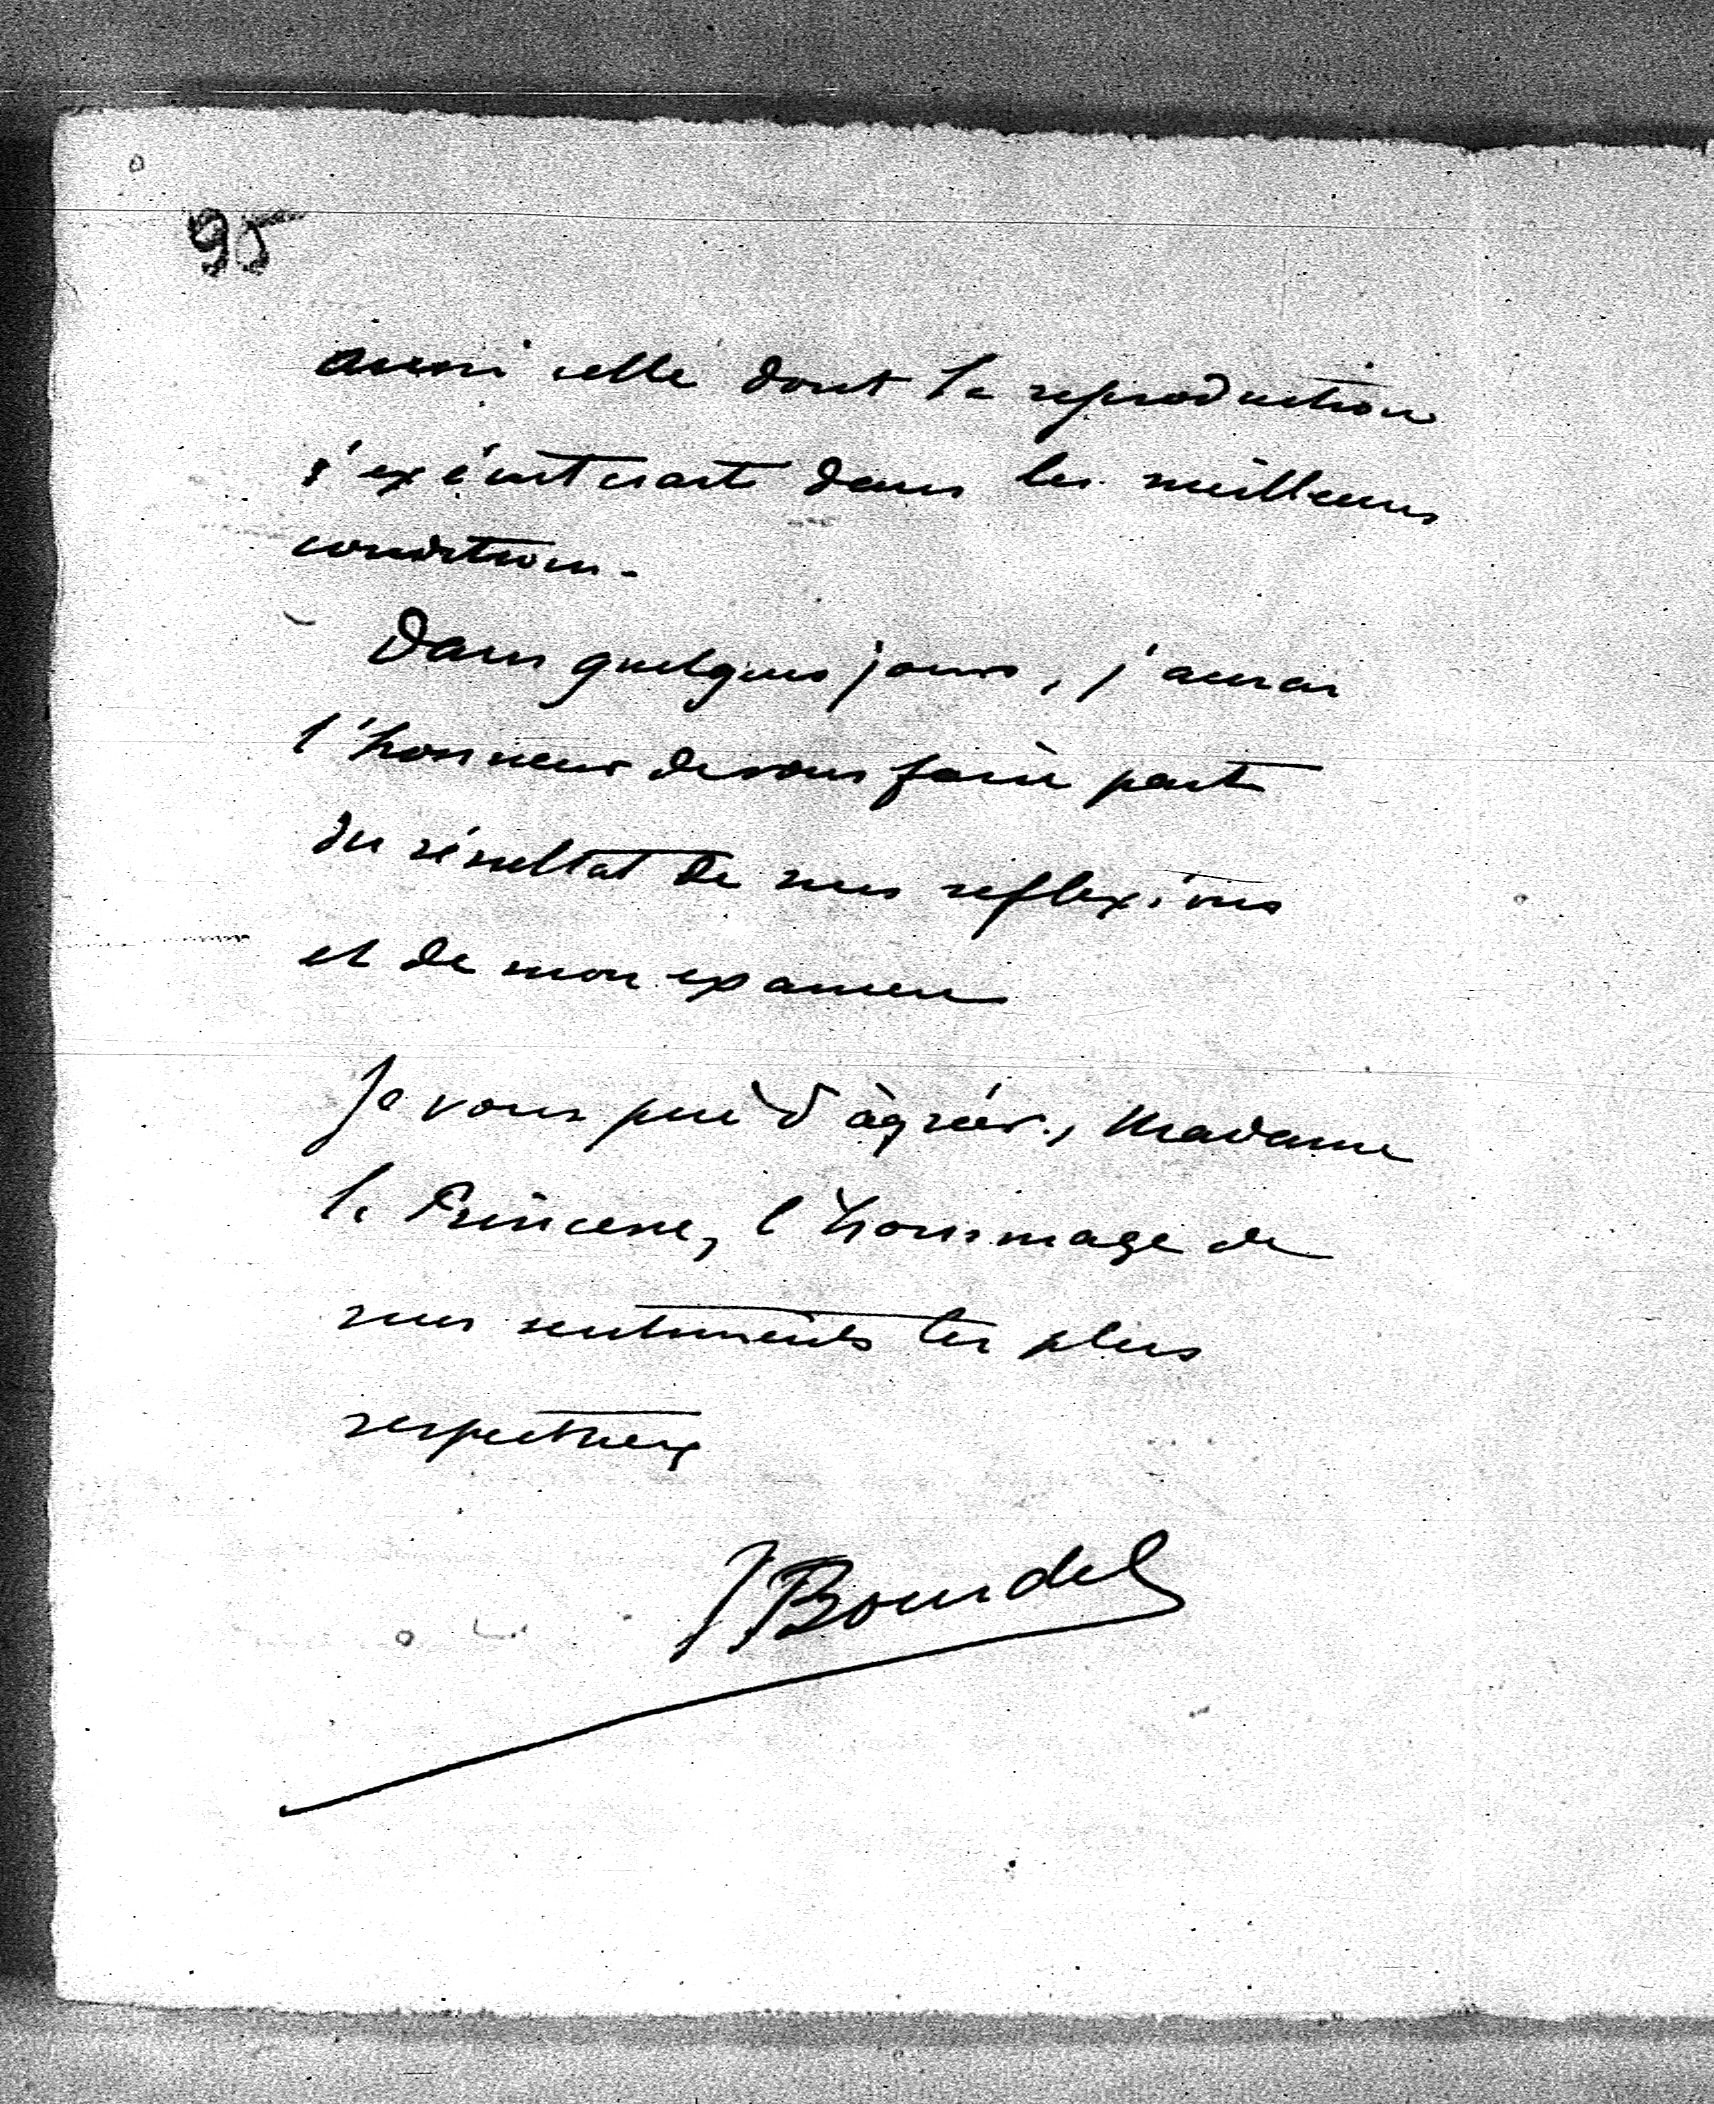 95
aussi celle dont la reproduction
s'exécuterait dans les meilleures
conditions.
Dans quelques jours, j'aurai
l'honneur de vous faire part
du résultat de mes réflexions
et de mon examen
Je vous prie d'agréer, Madame
la Princesse, l'hommage de
mes sentiments les plus
respectueux
J Bourdel